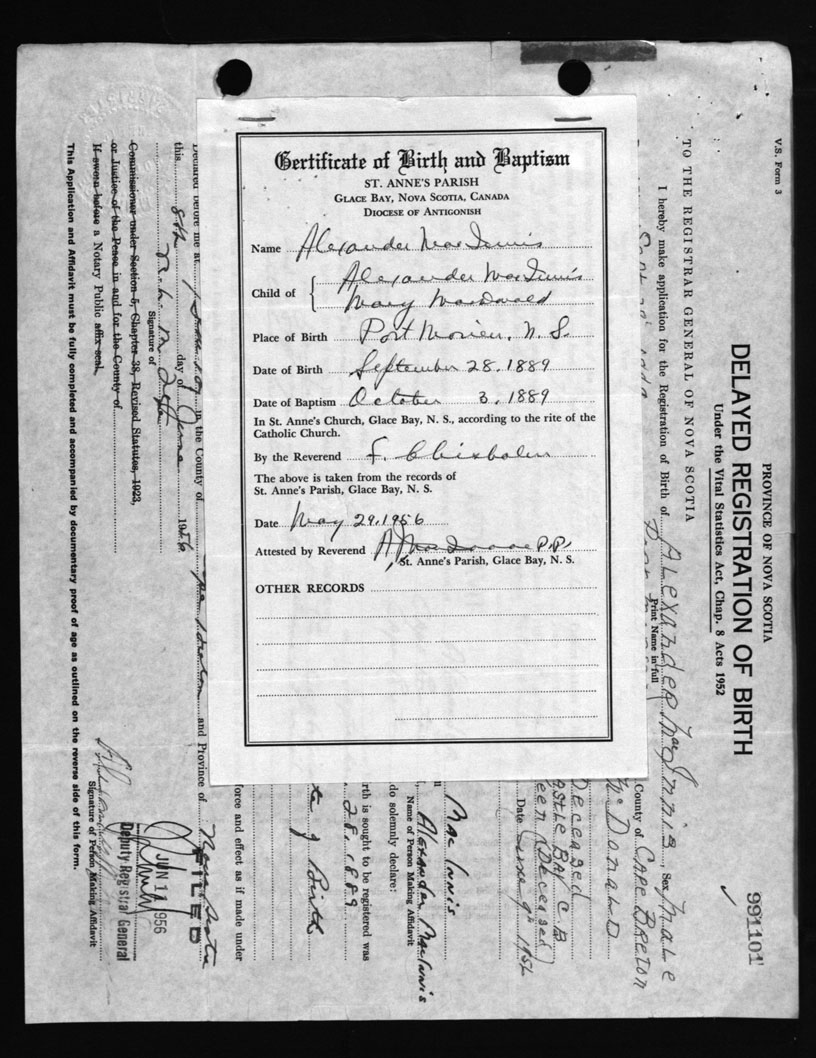 Certificate of Birth and Baptism
ST. ANNE'S PARISH
GLACE BAY, NOVA SCOTIA, CANADA
DIOCESE OF ANTIGONISH
Name Alexander MacInnis
Child of Alexander MacInnis
Mary MacDonald
Place of Birth Port Morien, N. S.
Date of Birth September 28. 1889
Date of Baptism October 3. 1889
In St. Anne's Church, Glace Bay, N. S., according to the rite of the
Catholic Church.
By the Reverend F. Chisholm
The above is taken from the records of
St. Anne's Parish, Glace Bay, N. S.
Date May 29. 1956
Attested by Reverend P.P.
St. Anne's Parish, Glace Bay, N. S.
OTHER RECORDS
V.S. Form 3
PROVINCE OF NOVA SCOTIA
991101
DELAYED REGISTRATION OF BIRTH
Under the Vital Statistics Act, Chap. 8 Acts 1952
TO THE REGISTRAR GENERAL OF NOVA SCOTIA
I hereby make application for the Registration of Birth of ALEXANDER MacINNIS Sex MALE
Print Name in full
County of CAPE BRETON
McDONALD
Deceased
BAY C.B.
(Deceased)
Date June 9th 1956
MacInnis
Alexander MacInnis
Name of Person Making Affidavit
do solemnly declare:
rth is sought to be registered was
28. 1889
of Birth
force and effect as if made under
Declared before me at in the County of and Province of Nova Scotia
this 8th day of June 1956
Signature of
Commissioner under Section 5, Chapter 38, Revised Statutes, 1923,
or Justice of the Peace in and for the County of
If sworn before a Notary Public affix seal.
FILED
JUN 11 1956
Deputy Registrar General
Signature of Person Making Affidavit
This Application and Affidavit must be fully completed and accompanied by documentary proof of age as outlined on the reverse side of this form.